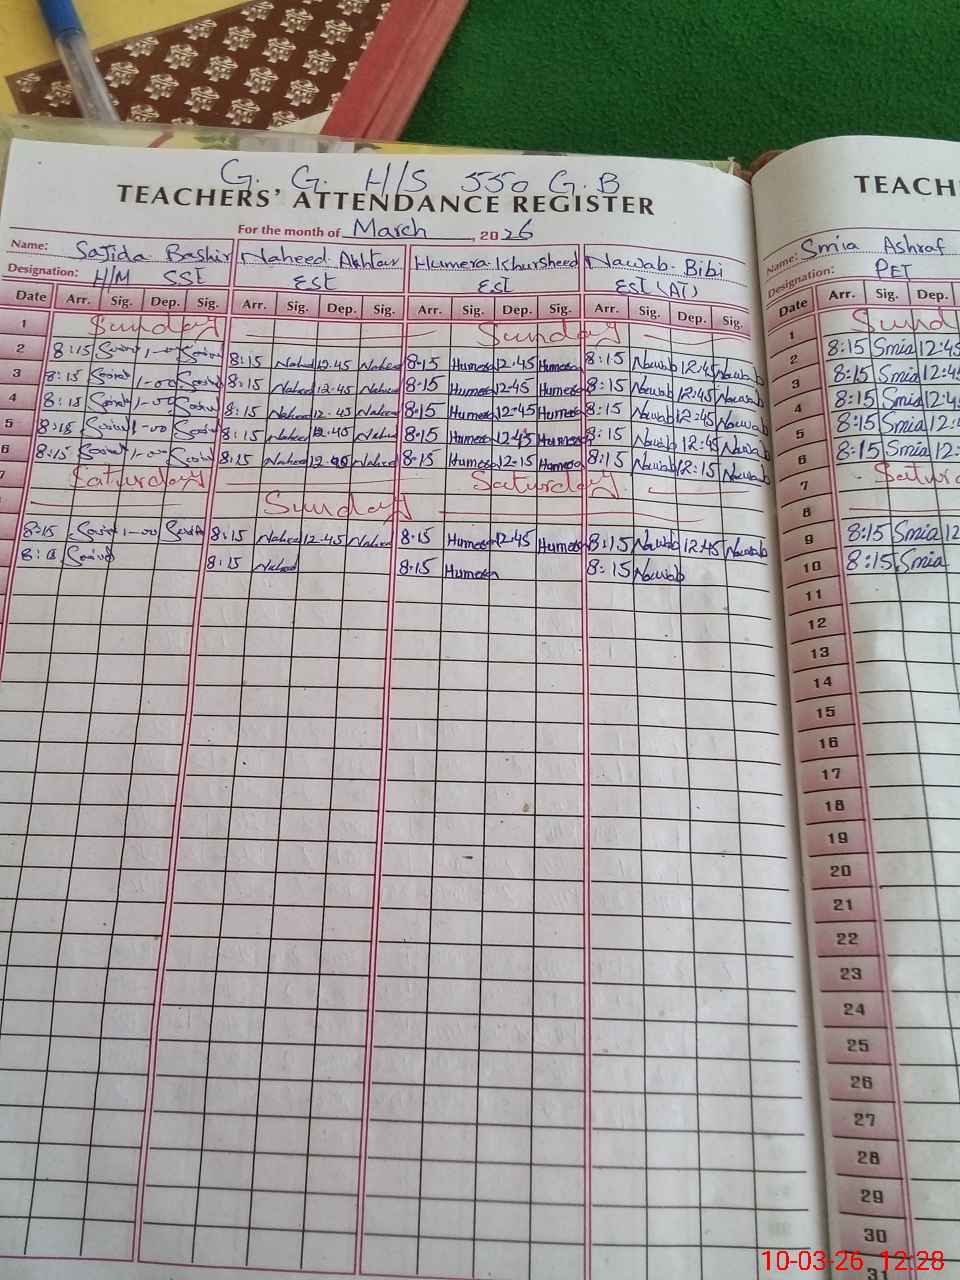 G. G. H/S 550 G.B
TEACHERS' ATTENDANCE REGISTER
TEACH
For the month of March, 2026
Name: Sajida Bashir Naheed Akhtar Humera Khursheed Nawab Bibi
Designation: H/M SSE EST EST EST (AT)
Name: Smia Ashraf
Designation: PET
Date Arr. Sig. Dep. Sig. Arr. Sig. Dep. Sig. Arr. Sig. Dep. Sig. Arr. Sig. Dep. Sig. Date Arr. Sig. Dep.
1 Sunday Sunday 1 Sund
2 8:15 1-00 8:15 Naheed 12.45 Naheed 8-15 Humera 12.45 Humera 8:15 Nawab 12:45 Nawab 2 8:15 Smia 12:45
3 8:15 1-00 8:15 Naheed 12.45 Naheed 8-15 Humera 12-45 Humera 8:15 Nawab 12:45 Nawab 3 8:15 Smia 12:4
4 8:15 1-00 8:15 Naheed 12.45 Naheed 8-15 Humera 12-45 Humera 8:15 Nawab 12:45 Nawab 4 8:15 Smia 12:4
5 8:15 1-00 8:15 Naheed 12.45 Naheed 8-15 Humera 12:45 Humera 8:15 Nawab 12:45 Nawab 5 8:15 Smia 12:
6 8:15 1-00 8:15 Naheed Naheed 8-15 Humera 12-15 Humera 8:15 Nawab 12:15 Nawab 6 8:15 Smia 12:
7 Saturday Saturday 7 Satur
Sunday 8
8:15 1-00 8:15 Naheed 12.45 Naheed 8-15 Humera 12-45 Humera 8:15 Nawab 12:45 Nawab 9 8:15 Smia 12
8:15 Naheed 8-15 Humera 8:15 Nawab 10 8:15 Smia
11
12
13
14
15
16
17
18
19
20
21
22
23
24
25
26
27
28
29
30
31
10-03-26 12:28